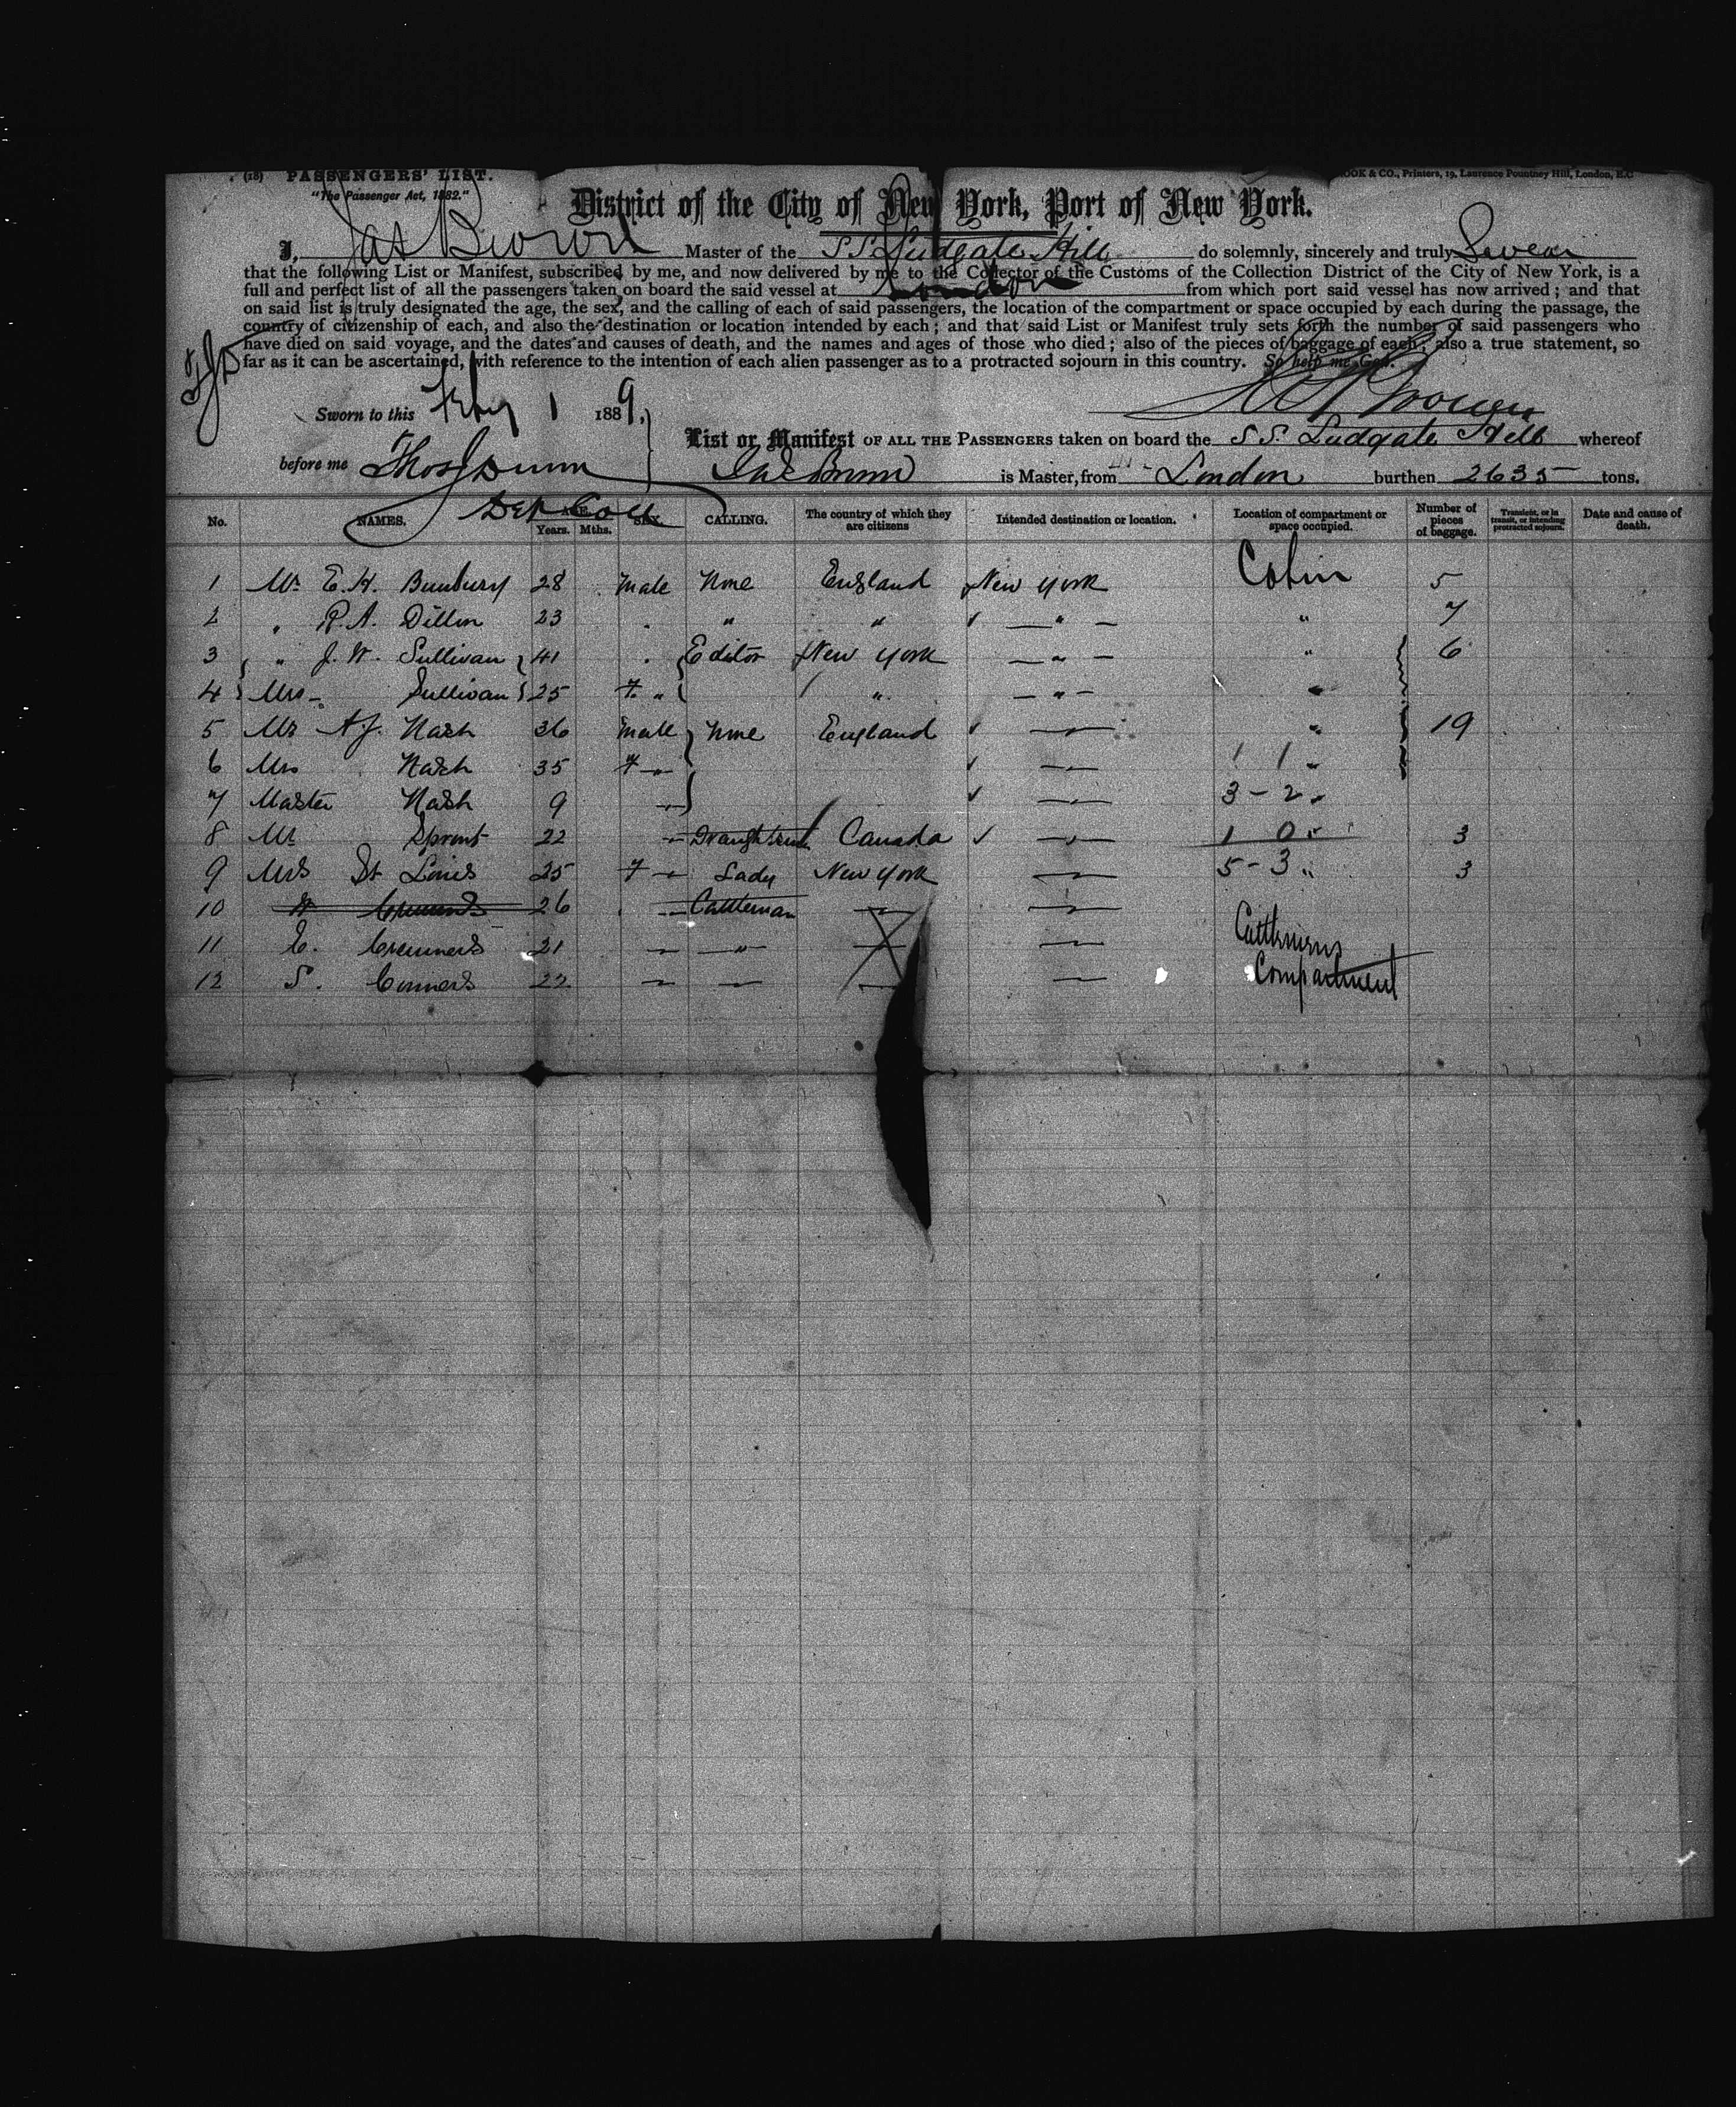 (18) PASSENGERS' LIST.
OOK & CO., Printers, 19, Laurence Pountney Hill, London, E.C
"The Passenger Act, 1882."
District of the City of New York, Port of New York.
I, Jas Brown Master of the SS Ludgate Hill do solemnly, sincerely and truly Swear
that the following List or Manifest, subscribed by me, and now delivered by me to the Collector of the Customs of the Collection District of the City of New York, is a
full and perfect list of all the passengers taken on board the said vessel at London from which port said vessel has now arrived; and that
on said list is truly designated the age, the sex, and the calling of each of said passengers, the location of the compartment or space occupied by each during the passage, the
country of citizenship of each, and also the destination or location intended by each; and that said List or Manifest truly sets forth the number of said passengers who
have died on said voyage, and the dates and causes of death, and the names and ages of those who died; also of the pieces of baggage of each; also a true statement, so
far as it can be ascertained, with reference to the intention of each alien passenger as to a protracted sojourn in this country. So help me God.
Sworn to this Feby 1 1889,
List or Manifest OF ALL THE PASSENGERS taken on board the S.S. Ludgate Hill whereof
before me Thos Dunn is Master, from London burthen 2635 tons.
Dep Coll
No. NAMES. AGE. Years. Mths. SEX. CALLING. The country of which they are citizens Intended destination or location. Location of compartment or space occupied. Number of pieces of baggage. Transient, or in transit, or intending protracted sojourn. Date and cause of death.
1 Mr. E. H. Bunbury 28 Male None England New York Cabin 5
2 " R. A. Dillon 23 " " " " " 7
3 " J. W. Sullivan 41 " Editor New York " " 6
4 Mrs Sullivan 25 F. " " " "
5 Mr A. J. Nash 36 Male None England " " 19
6 Mrs Nash 35 F " " 1 1 "
7 Master Nash 9 " " 3 - 2 "
8 Mr Sprout 22 " Canada " 1 0 " 3
9 Mrs St Louis 25 F " Lady New York " 5 - 3 " 3
10 26 " Cattleman " "
11 E. 21 " " " " Cattlemens
12 S. Conners 22 " " " " Compartment